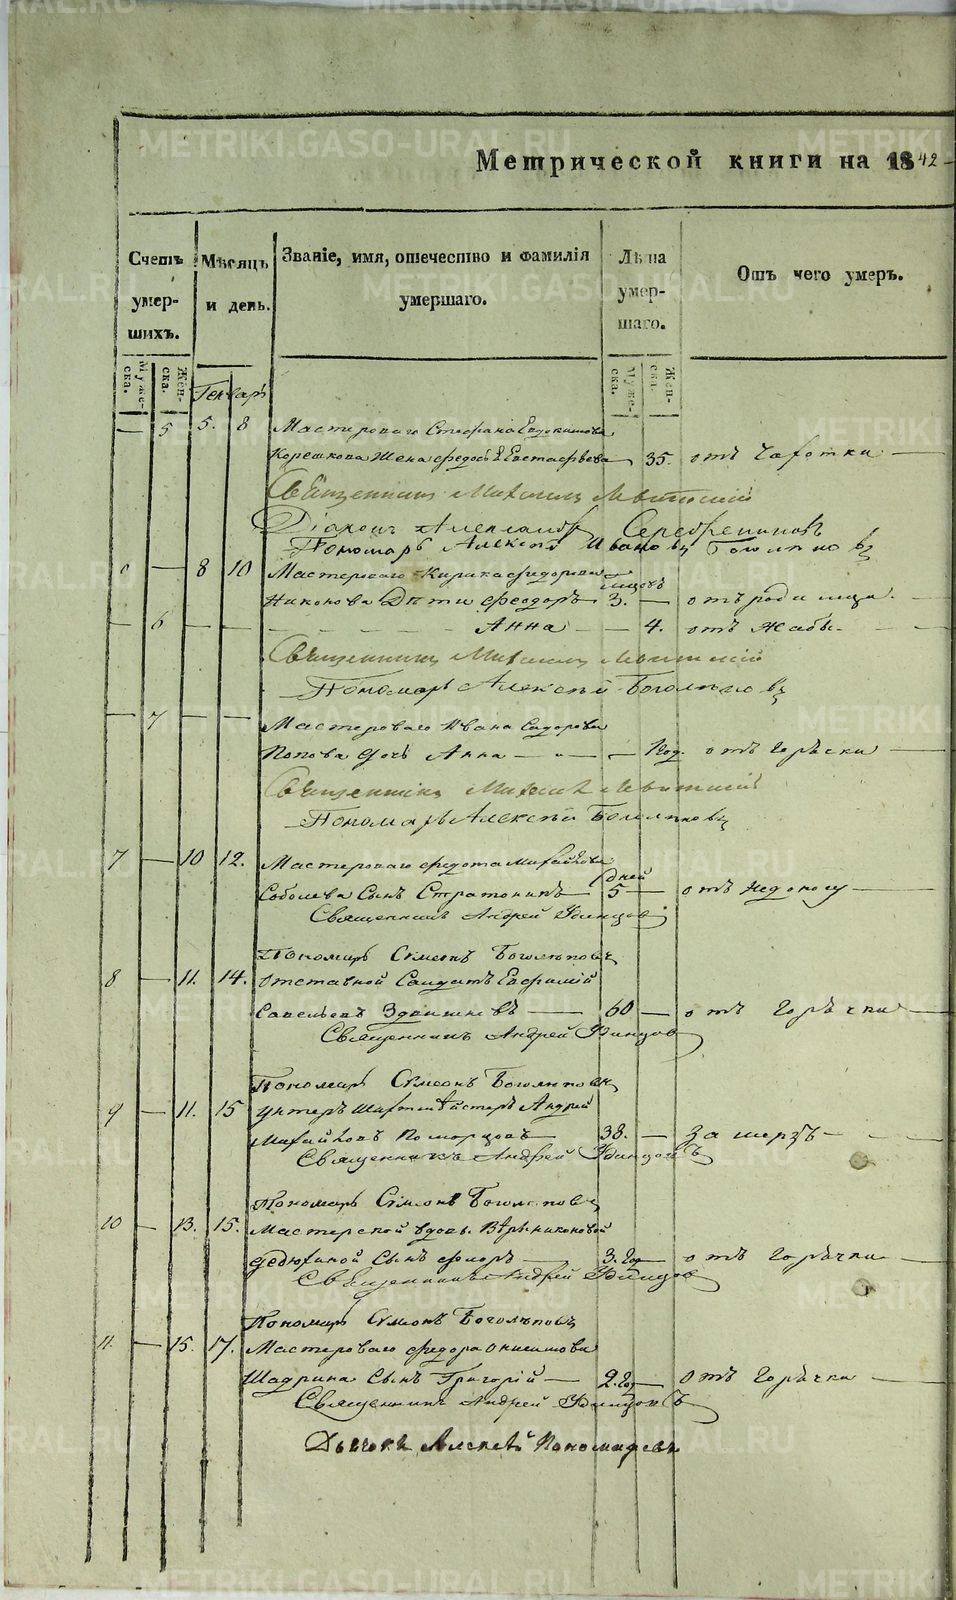 METRIKI.GASO-URAL.RU
Метрической книги на 1842
Счетъ умер-шихъ.
Мѣсяцъ и день.
Званіе, имя, отечество и фамилія умершаго.
Лѣта умер-шаго.
Отъ чего умеръ.
Муже-ска. Жен-ска. Генварь Муже-ска. Жен-ска.
— 5 5. 8 Мастероваго Стефана Евдокимова
Корешкова Жена Федосья Евстафьева 35. отъ Чахотки —
Священникъ Михаилъ
Діаконъ Александръ Серебрениковъ
Пономарь Алексѣй Ивановъ Боголѣповъ
— 8 10 Мастероваго Кирика Федорова
Никонова Дѣти Феодоръ 3. — отъ родимца.
— 6 — — Анна — 4. отъ Жабы —
Священникъ Михаилъ
Пономарь Алексѣй Боголѣповъ
— 7 — — Мастероваго Ивана Сидорова
Попова дочь Анна — 1 год. отъ Горячки —
Священникъ Михаилъ
Пономарь Алексѣй Боголѣповъ
7 — 10 12. Мастероваго Федота Михайлова
дней
Соболева Сынъ Стратоникъ 5 — отъ недоносу —
Священникъ Андрей Удинцовъ
Пономарь Сѵмеонъ Боголѣповъ
8 — 11. 14. Отставной Салдатъ Евфимій
Савельевъ — 60 — отъ Горячки —
Священникъ Андрей Удинцовъ
Пономарь Сѵмеонъ Боголѣповъ
9 — 11. 15 Унтеръ Шахтмейстеръ Андрей
Михайловъ Поморцовъ 38. — замерзъ —
Священникъ Андрей Удинцовъ
Пономарь Сѵмеонъ Боголѣповъ
10 — 13. 15. Мастерской вдовы Вѣры Никоновой
Федюниной Сынъ Флоръ — 3. го — отъ Горячки —
Священникъ Андрей Удинцовъ
Пономарь Сѵмеонъ Боголѣповъ
11. — 15. 17. Мастероваго Федора Онисимова
Шадрина Сынъ Григорій — 2. го — отъ Горячки —
Священникъ Андрей Удинцовъ
Дьячекъ Алексѣй Пономаревъ